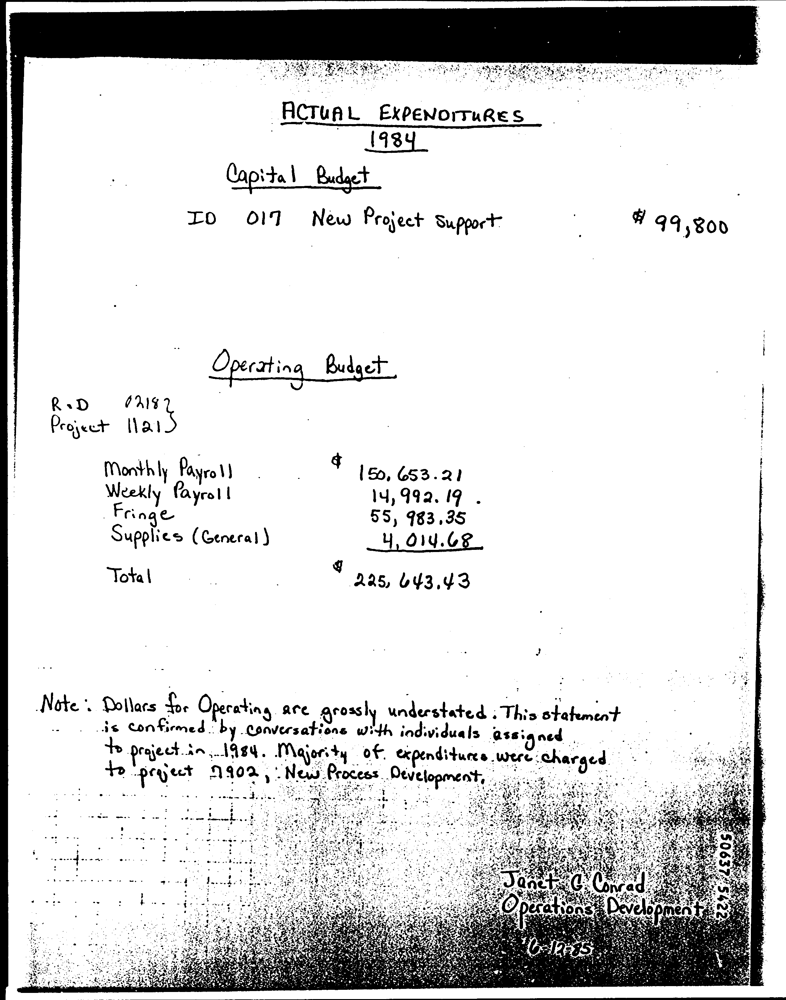 ACTUAL EXPENDITURES
1984
Capital Budget
ID 017 New Project Support $ 99,800
Operating Budget
R.D 0218 }
Project 1121 }
Monthly Payroll $ 150,653.21
Weekly Payroll 14,992.19
Fringe 55,983.35
Supplies (General) 4,014.68
Total $ 225,643.43
Note: Dollars for Operating are grossly understated. This statement
is confirmed by conversations with individuals assigned
to project in 1984. Majority of expenditures were charged
to project 7902, New Process Development.
Janet C. Conrad
Operations Development
6-12-85
50637 5422